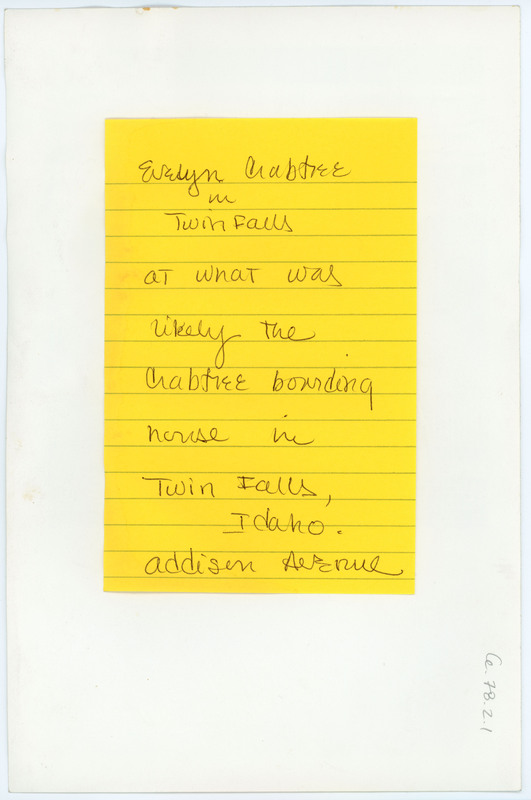 Evelyn Crabtree
in
Twin Falls
at what was
likely the
Crabtree boarding
house in
Twin Falls,
Idaho.
Addison Avenue
6.78.2.1